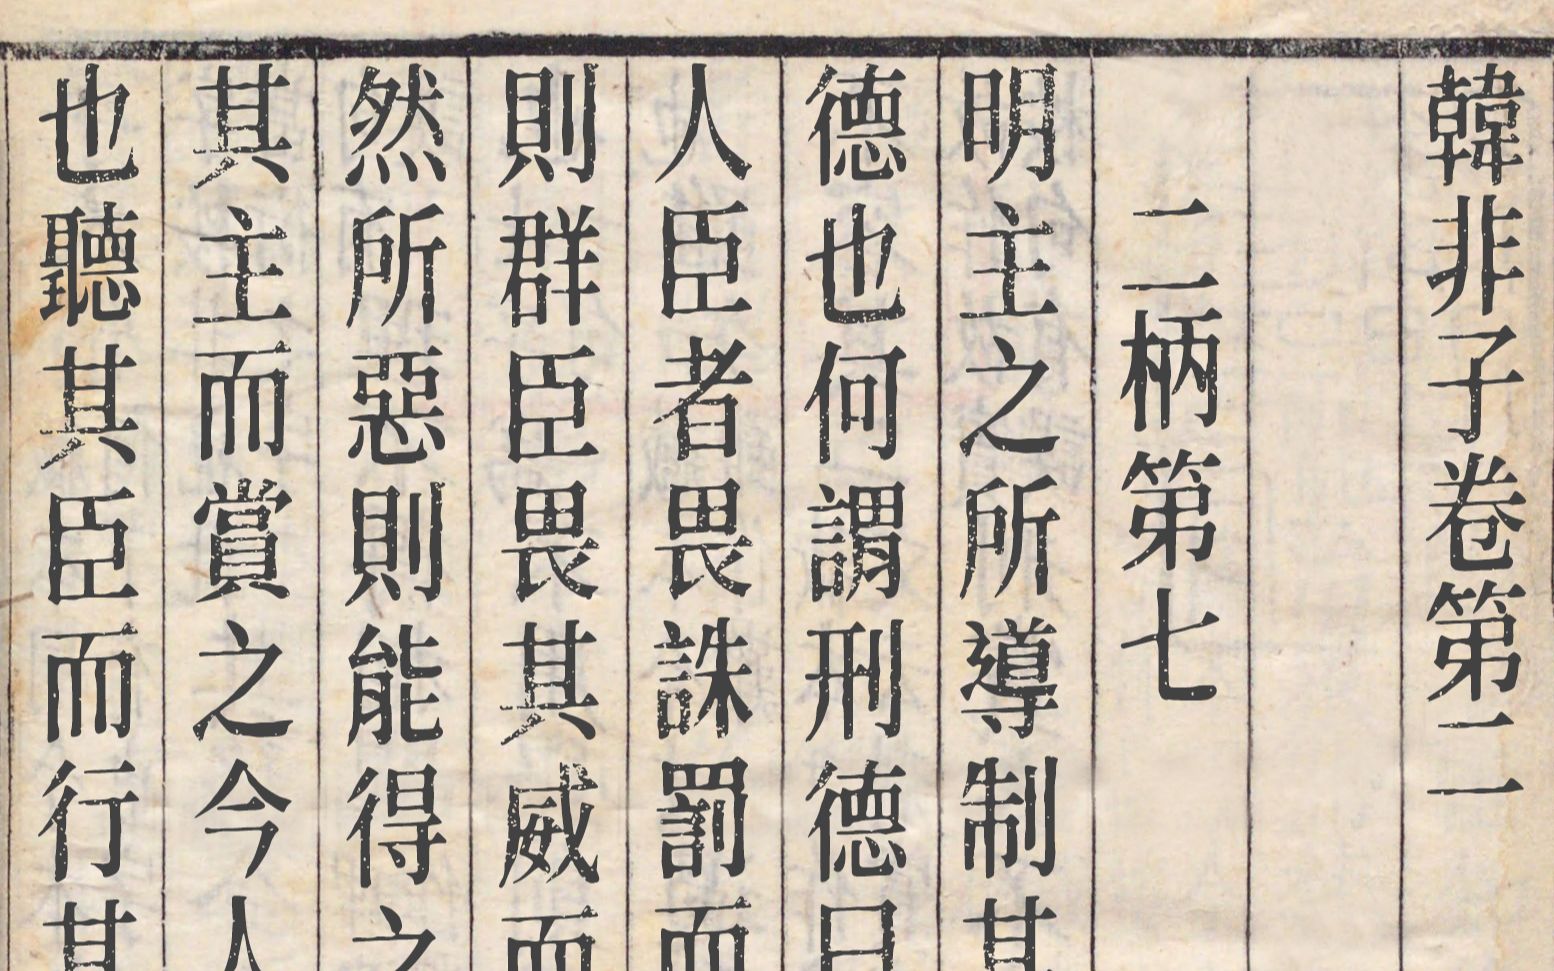 韓非子卷第二
二柄第七
明主之所導制其
德也何謂刑德曰
人臣者畏誅罰而
則群臣畏其威而
然所惡則能得之
其主而賞之今人
也聽其臣而行其